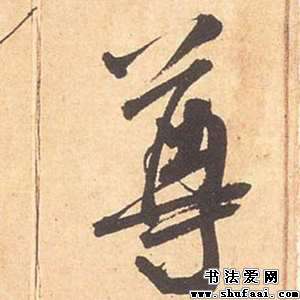 尊
书法爱网
www.shufaai.com